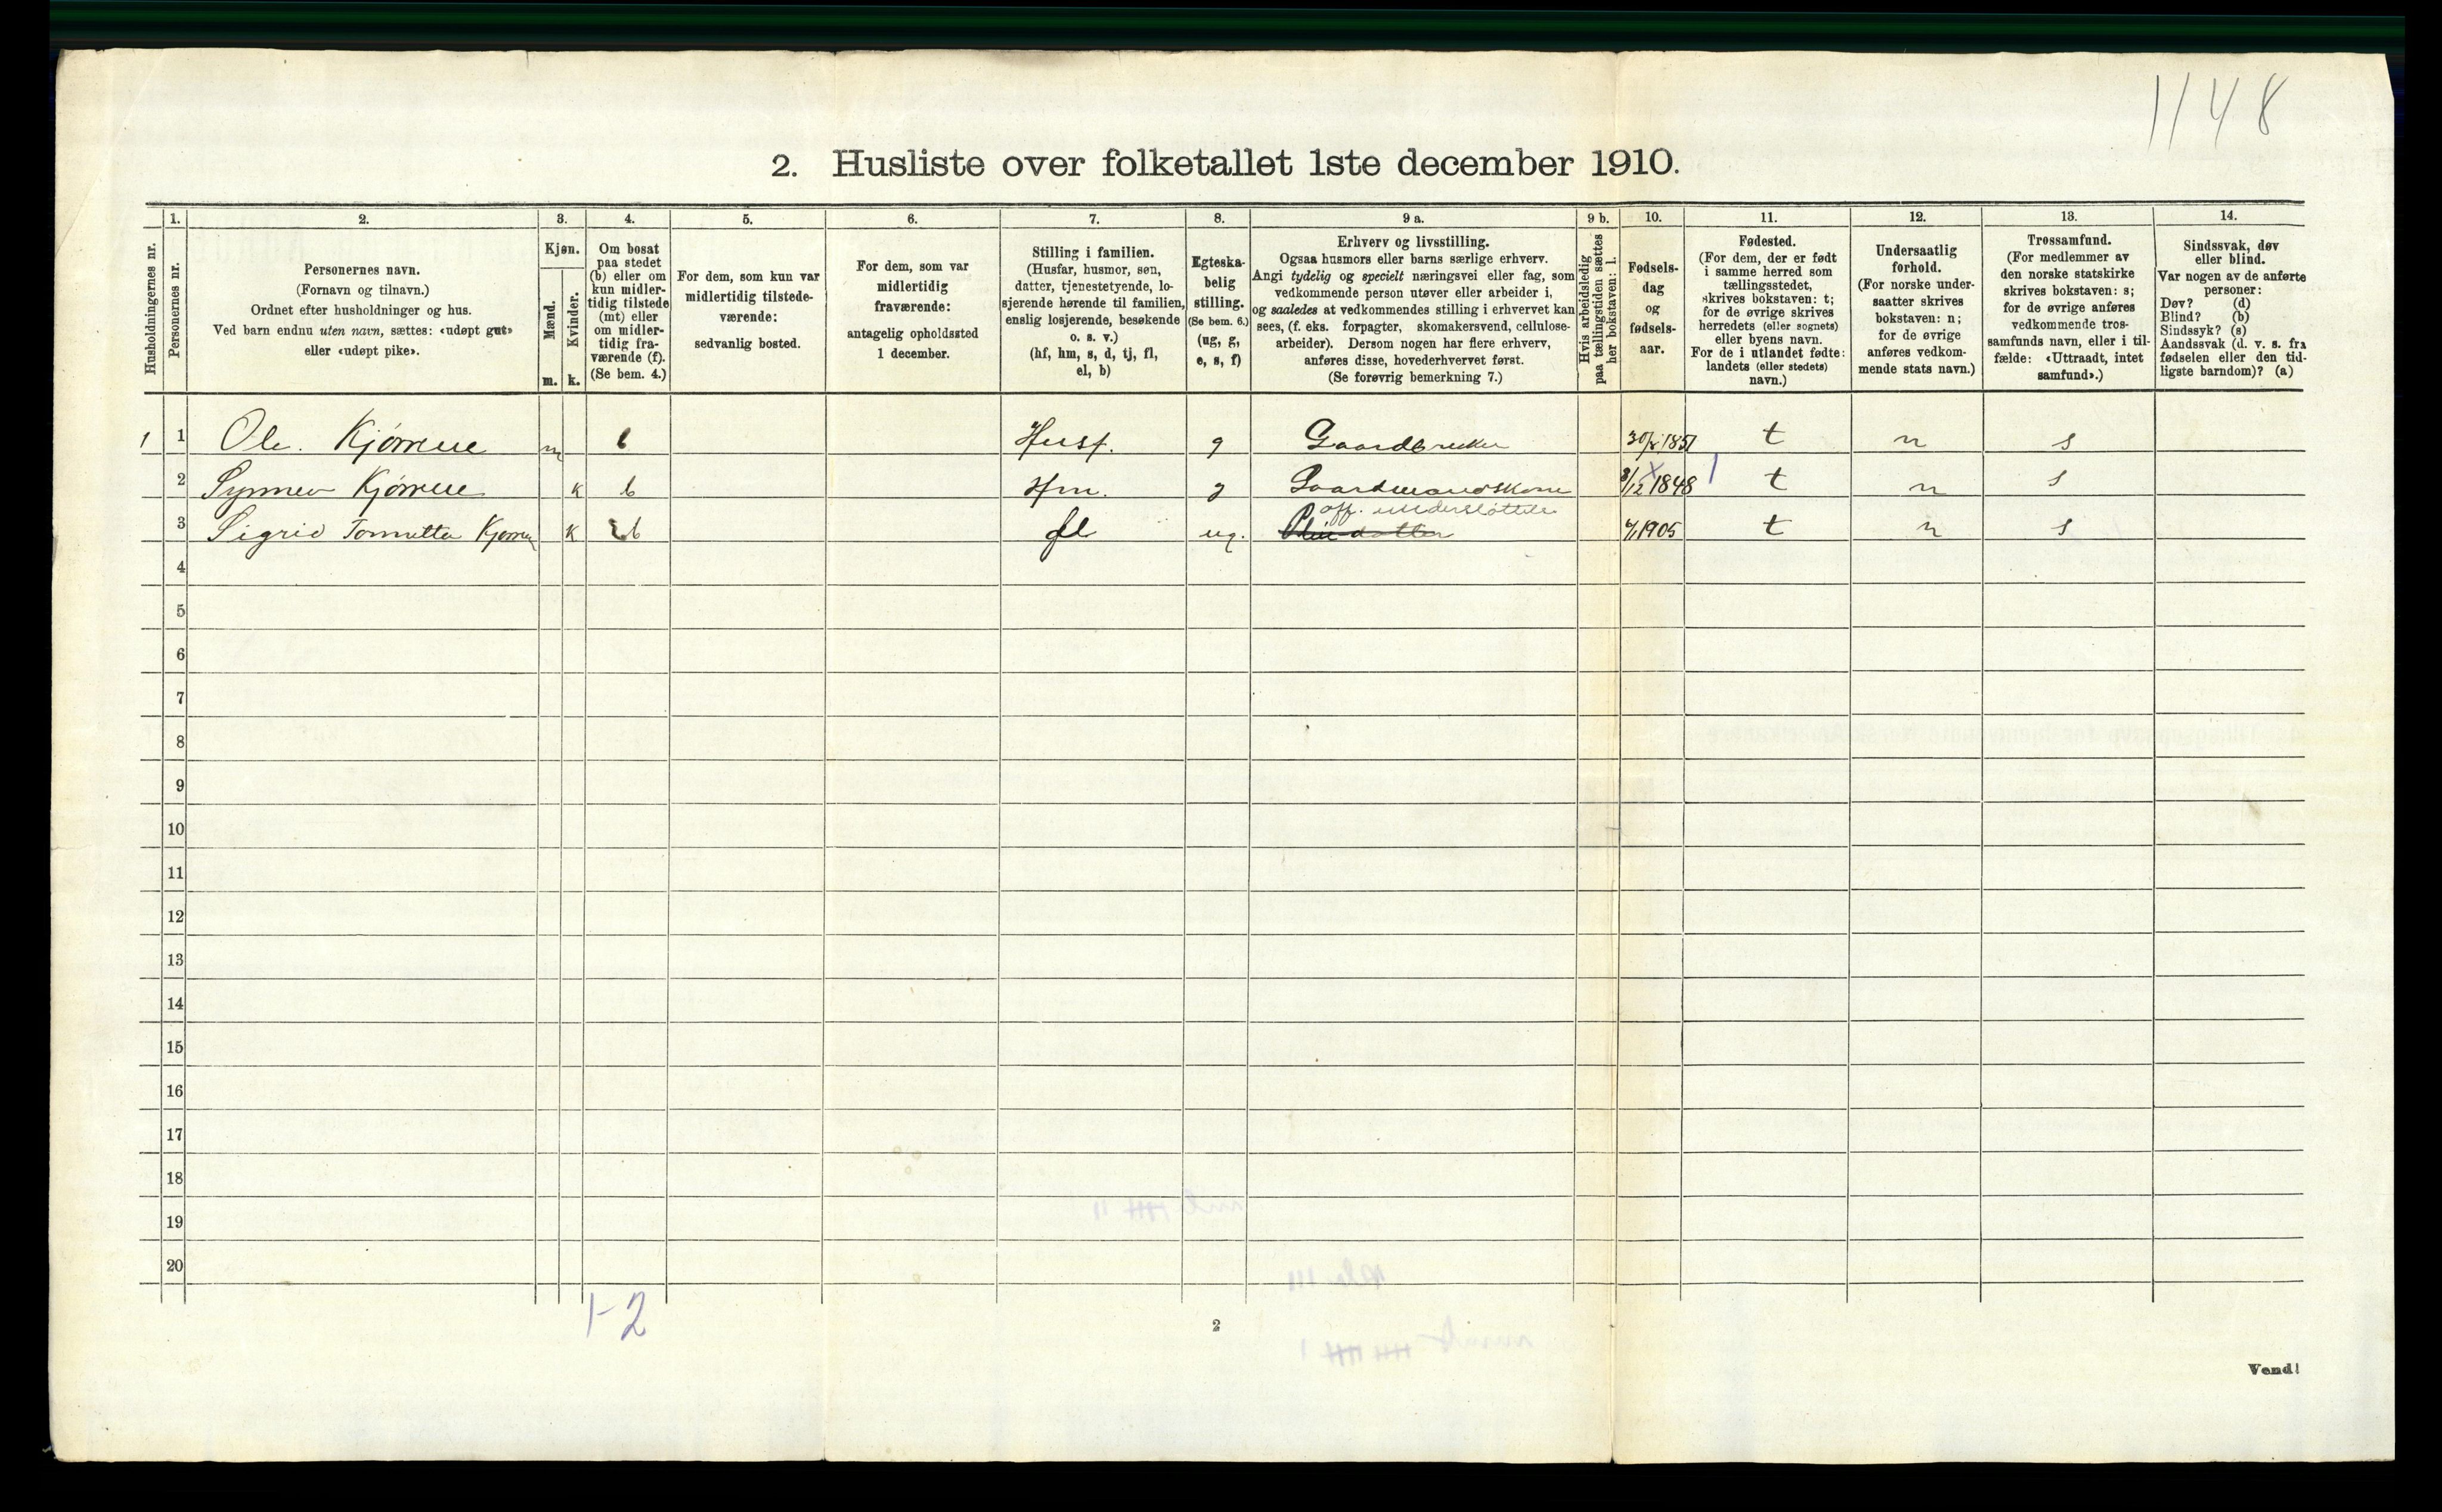 1148
2. Husliste over folketallet 1ste december 1910.
Husholdningernes nr.
1.
Personernes nr.
2.
Personernes navn.
(Fornavn og tilnavn.)
Ordnet efter husholdninger og hus.
Ved barn endnu uten navn, sættes: «udøpt gut»
eller «udøpt pike».
3.
Kjøn.
Mænd.
Kvinder.
m. k.
4.
Om bosat
paa stedet
(b) eller om
kun midler-
tidig tilstede
(mt) eller
om midler-
tidig fra-
værende (f).
(Se bem. 4.)
5.
For dem, som kun var
midlertidig tilstede-
værende:
sedvanlig bosted.
6.
For dem, som var
midlertidig
fraværende:
antagelig opholdssted
1 december.
7.
Stilling i familien.
(Husfar, husmor, søn,
datter, tjenestetyende, lo-
sjerende hørende til familien,
enslig losjerende, besøkende
o. s. v.)
(hf, hm, s, d, tj, fl,
el, b)
8.
Egteska-
belig
stilling.
(Se bem. 6.)
(ug, g,
e, s, f)
9 a.
Erhverv og livsstilling.
Ogsaa husmors eller barns særlige erhverv.
Angi tydelig og specielt næringsvei eller fag, som
vedkommende person utøver eller arbeider i,
og saaledes at vedkommendes stilling i erhvervet kan
sees, (f. eks. forpagter, skomakersvend, cellulose-
arbeider). Dersom nogen har flere erhverv,
anføres disse, hovederhvervet først.
(Se forøvrig bemerkning 7.)
9 b.
Hvis arbeidsledig
paa tællingstiden sættes
her bokstaven: l.
10.
Fødsels-
dag
og
fødsels-
aar.
11.
Fødested.
(For dem, der er født
i samme herred som
tællingsstedet,
skrives bokstaven: t;
for de øvrige skrives
herredets (eller sognets)
eller byens navn.
For de i utlandet fødte:
landets (eller stedets)
navn.)
12.
Undersaatlig
forhold.
(For norske under-
saatter skrives
bokstaven: n;
for de øvrige
anføres vedkom-
mende stats navn.)
13.
Trossamfund.
(For medlemmer av
den norske statskirke
skrives bokstaven: s;
for de øvrige anføres
vedkommende tros-
samfunds navn, eller i til-
fælde: «Uttraadt, intet
samfund».)
14.
Sindssvak, døv
eller blind.
Var nogen av de anførte
personer:
Døv? (d)
Blind? (b)
Sindssyk? (s)
Aandssvak (d. v. s. fra
fødselen eller den tid-
ligste barndom)? (a)
1 1 Ole Kjørrene m b Husf. g Gaardbruker 1851 t n s
2 Synnev Kjørrene k b Hm. g Gaardmandskone 3/12 1848 t n s
off. understøttelse
3 Sigrid k b fl ug. 1905 t n s
4
5
6
7
8
9
10
11
12
13
14
15
16
17
18
19
20
1-2
2
Vend!